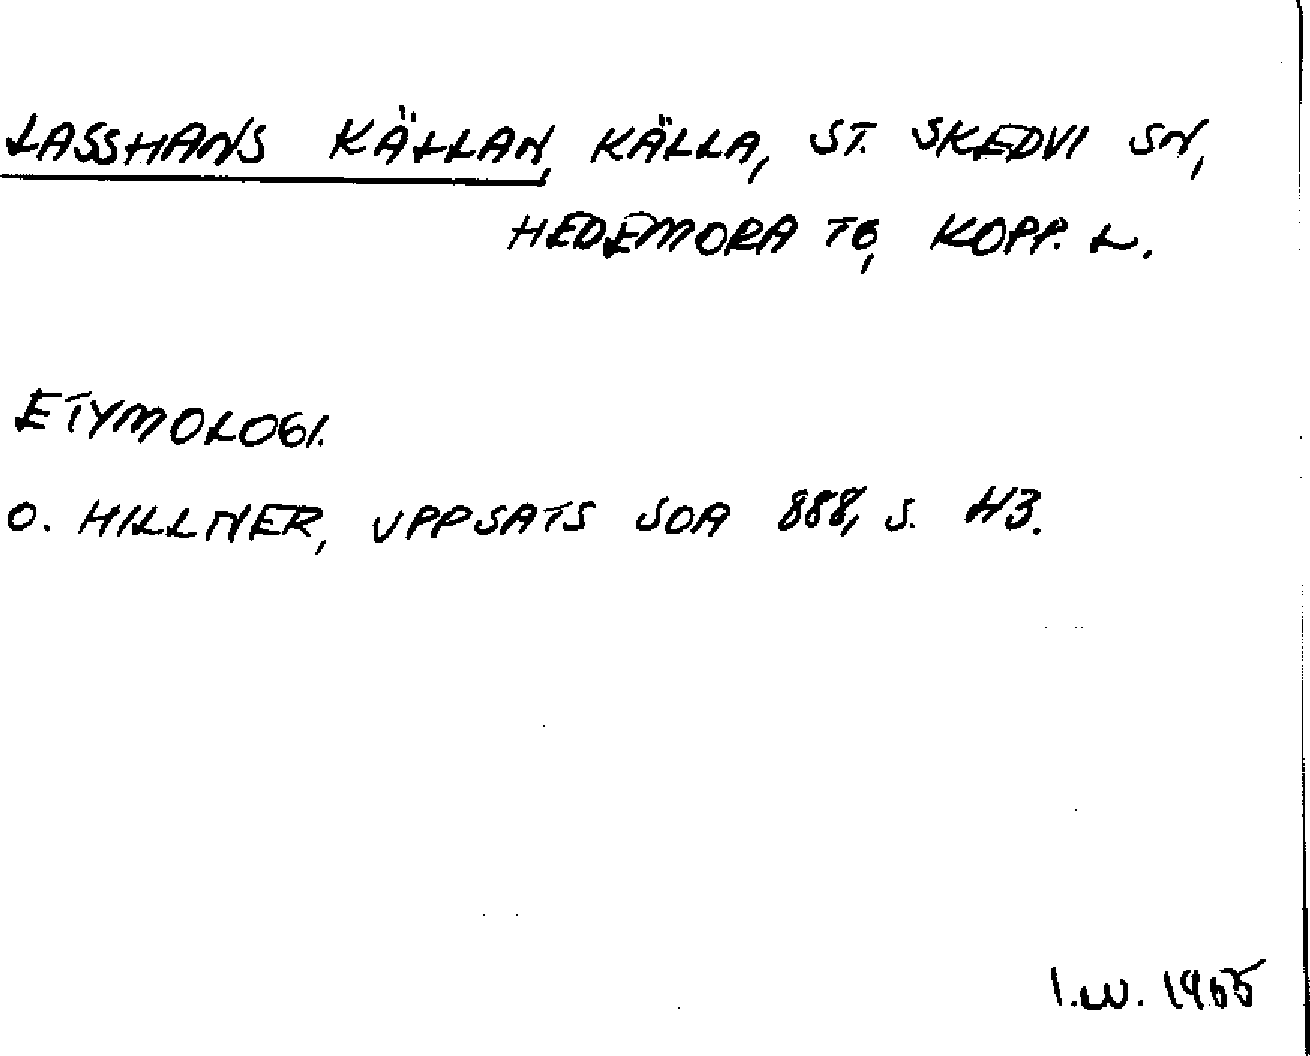 LASSHANS KÄLLAN, KÄLLA, ST. SKEDVI SN,
HEDEMORA TG, KOPP. L.
ETYMOLOGI.
O. HILLNER, UPPSATS SOA 888, S. 43.
I.W. 1965